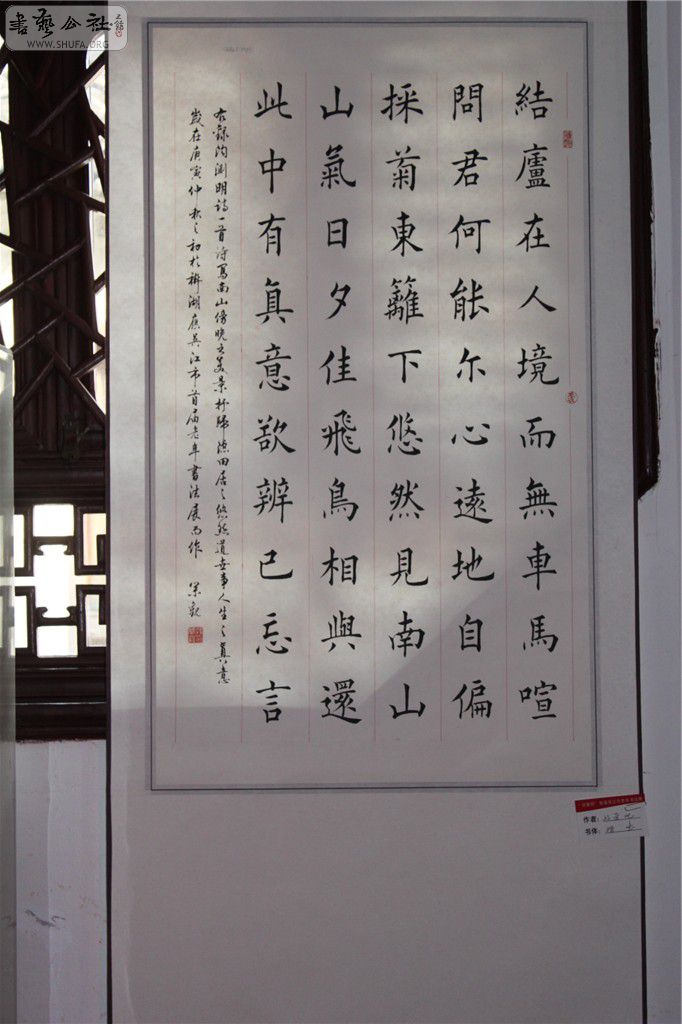 書藝公社
WWW.SHUFA.ORG
結廬在人境而無車馬喧
問君何能尔心遠地自偏
採菊東籬下悠然見南山
山氣日夕佳飛鳥相與還
此中有真意欲辨已忘言
右錄陶渊明詩一首詩寫南山傍晚之美景抒歸隐田居之悠然道世事人生之真意
歲在庚寅仲秋之初於 湖應吴江市首届老年書法展而作
作者：
书体：楷书